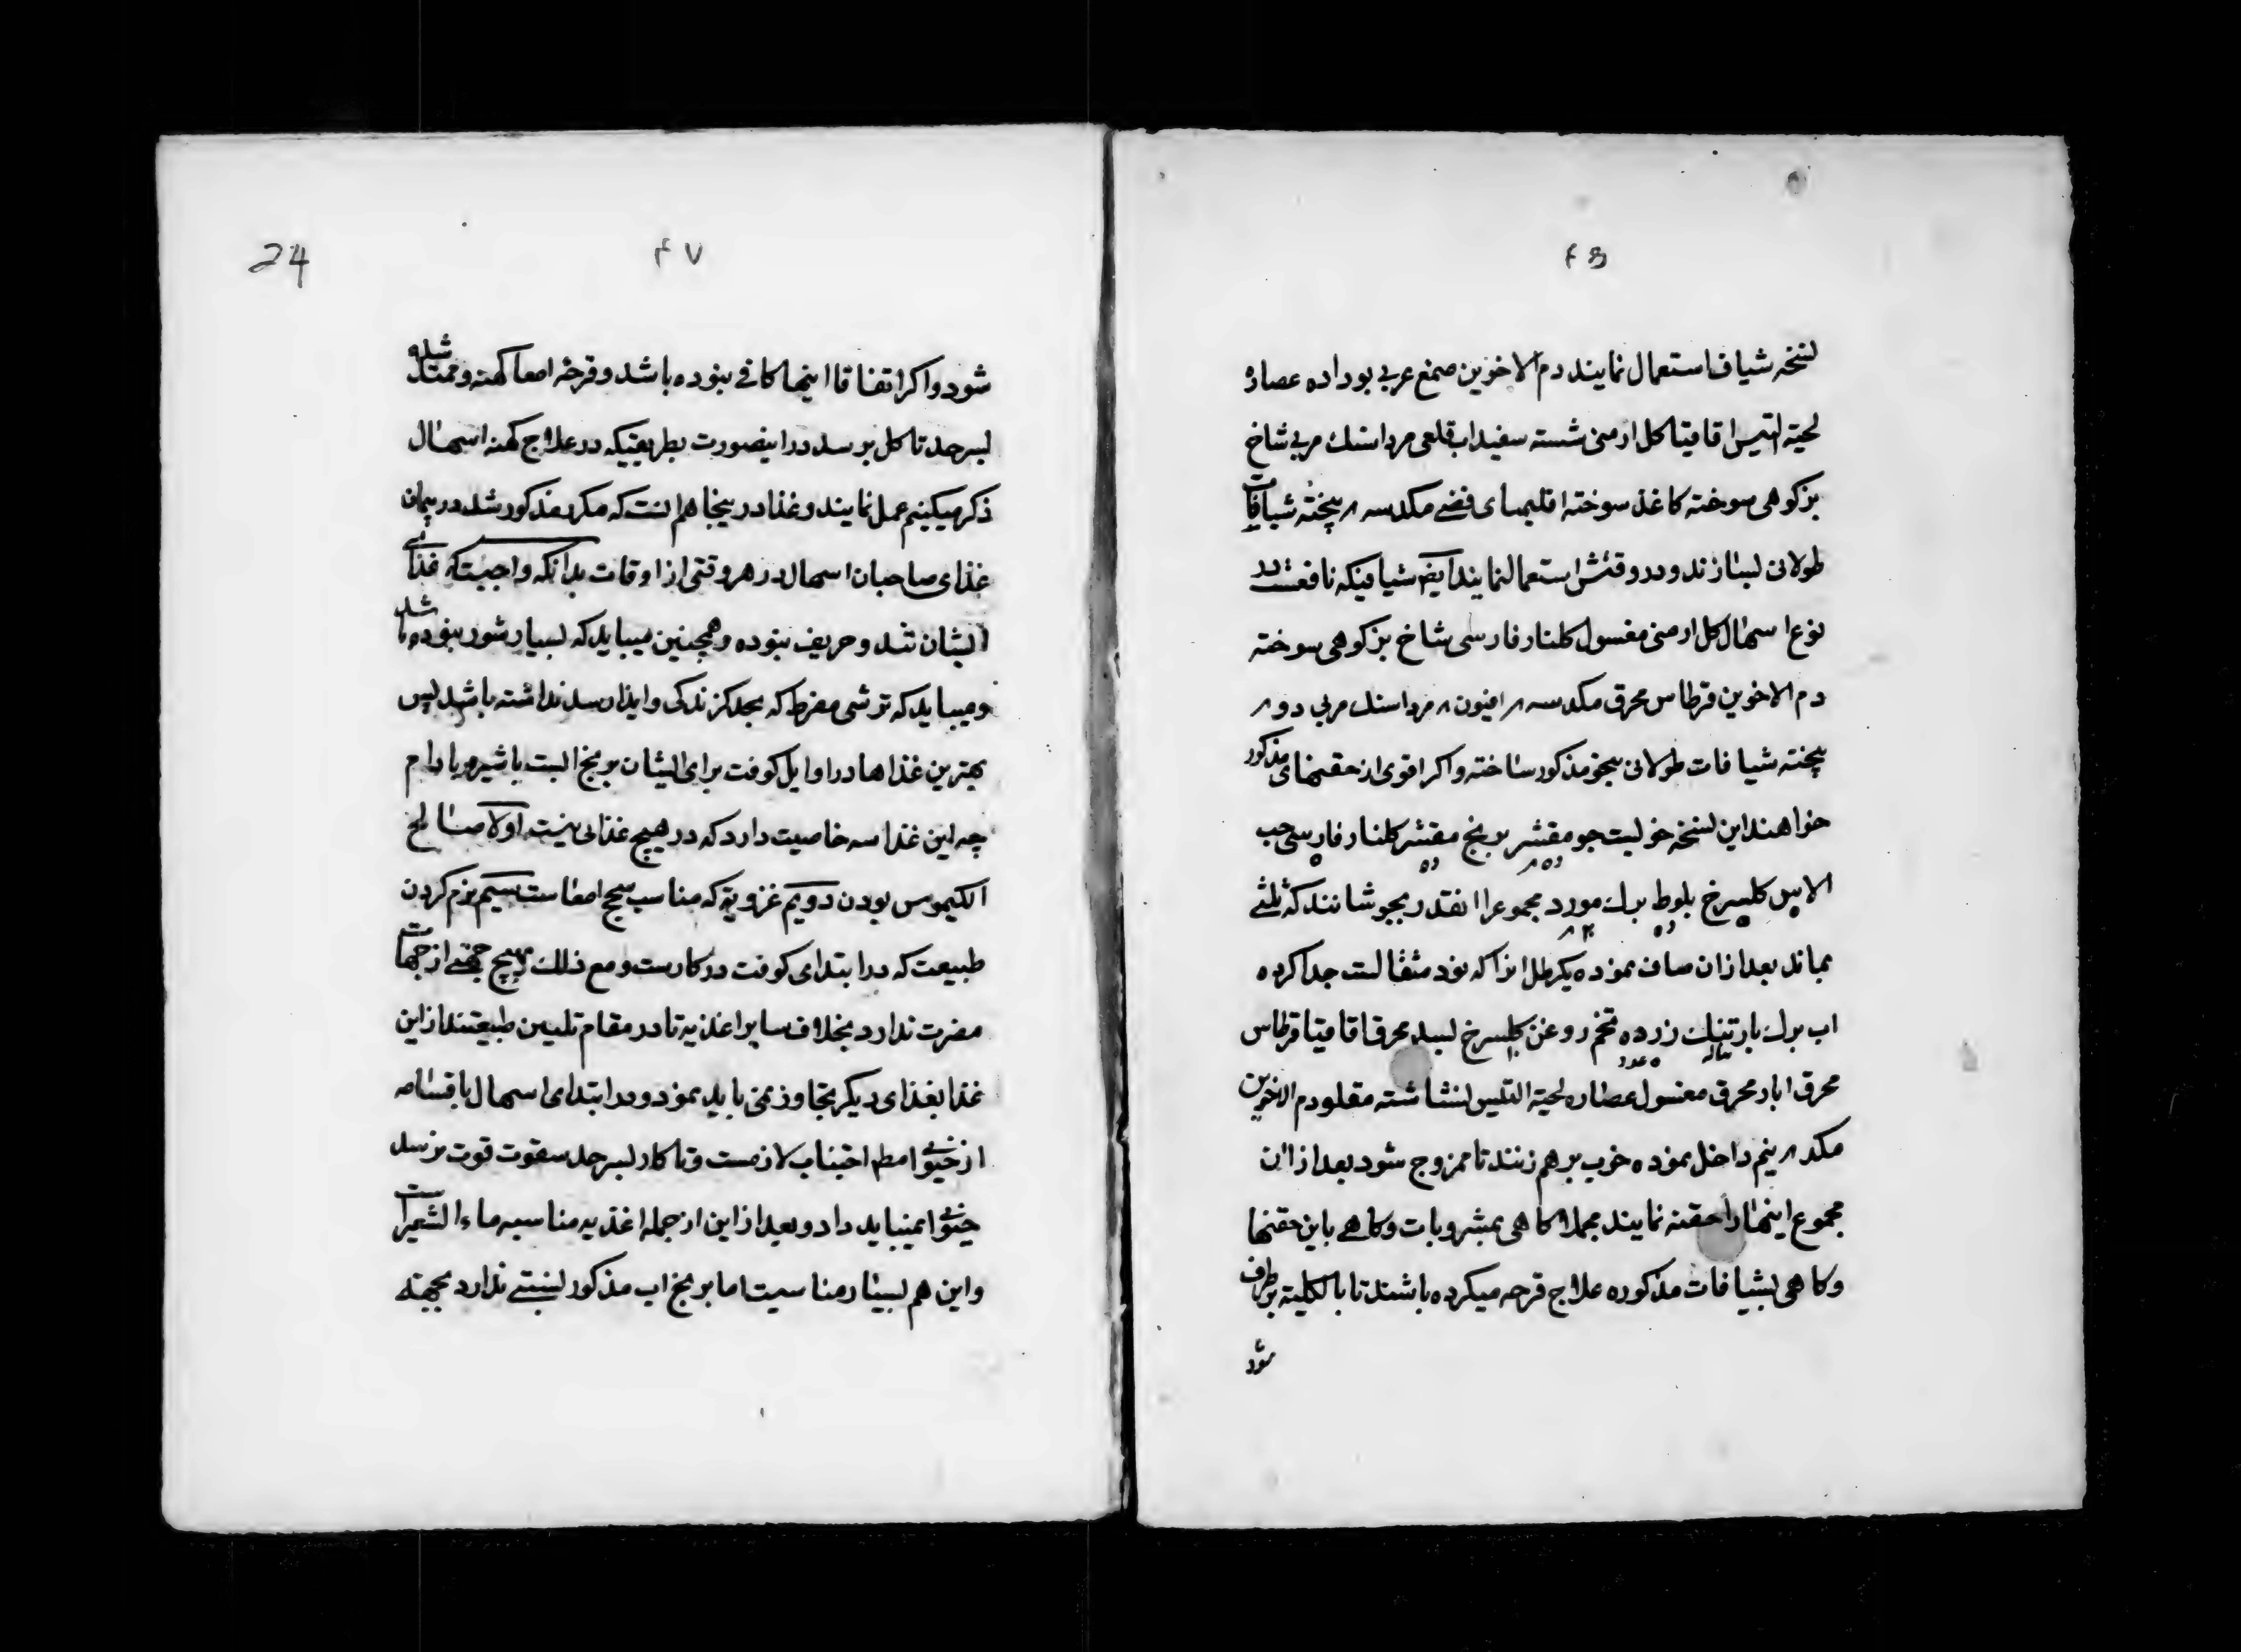 نسخه شیاف استعمال نمایند دم الاخوین صمغ عربی بوداده عصاره
لحیة التیس اقاقیا کل ارمنی شسته سفیداب قلعی مرداسنك مربی شاخ
بزکوهی سوخته کاغذ سوخته اقلیمیای فضی مکد سه بیخته شیافات
طولانی بسازند و در وقتش استعمال نمایند ایضا شیافیکه نافعست در
نوع اسهال کل ارمنی مغسول کلنار فارسی شاخ بزکوهی سوخته
دم الاخوین قرطاس محرق مکد سه افیون مرداسنك مربی دو
بیخته شیافات طولانی بنحو مذکور ساخته و اکر اقوی از حقنهای مذکور
خواهند این نسخه خوبست جو مقشر برنج مقشر کلنار فارسی حب
الاس کلسرخ بلوط برك مورد مجموعرا انقدر بجوشانند که ثلثی
بماند بعد از ان صاف نموده یکرطل انرا که نود مثقالست جدا کرده
اب برك بارتنك زرده تخم روغن کلسرخ بسد محرق اقاقیا قرطاس
محرق ابار محرق مغسول عصاره لحیة التیس نشاشته مقلو دم الاخوین
مکد نیم داخل نموده خوب برهم زنند تا ممزوج شود بعد از ان
مجموع اینهارا حقنه نمایند مجملا کاهی بمشروبات و کاهی باین حقنها
و کاهی بشیافات مذکوره علاج قرحه میکرده باشند تا بالکلیه برطرف
شود
۴۷
24
شود و اکر اتفاقا اینها کافی نبوده باشد و قرحه امعا کهنه و ممتد شده
بسرحد تاکل برسد در اینصورت بطریقیکه در علاج کهنه اسهال
ذکر میکنیم عمل نمایند و غذا در ینجا هم انست که مکرر مذکور شد در بیان
غذای صاحبان اسهال در هر وقتی از اوقات بدانکه واجبست که غذای
ایشان تند و حریف نبوده و همچنین میباید که بسیار شور نبوده باشد
و میباید که ترشی مفرط که بحد کزندکی و ایذا رسد نداشته باشد پس
بهترین غذاها در اوایل کوفت برای ایشان برنج ابست با شیره بادام
چه این غذا سه خاصیت دارد که در هیچ غذائی نیست اولا صالح
الکیموس بودن دویم غرویة که مناسب سحج امعاست سیم نرم کردن
طبیعت که در ابتدای کوفت در کارست و مع ذلك بهیچ جهتی از جهات
مضرت ندارد بخلاف سایر اغذیه تا در مقام تلیین طبیعتند از این
غذا بغذای دیکر تجاوز نمی باید نمود و در ابتدای اسهال باقسامه
از حیوانی مطلقا اجتناب لازمست و تا کار بسرحد سقوت قوت نرسد
حیوانی نمیباید داد و بعد از این از جمله اغذیه مناسبه ماء الشعیر است
و این هم بسیار مناسبست اما برنج اب مذکور نسبتی ندارد بجهة